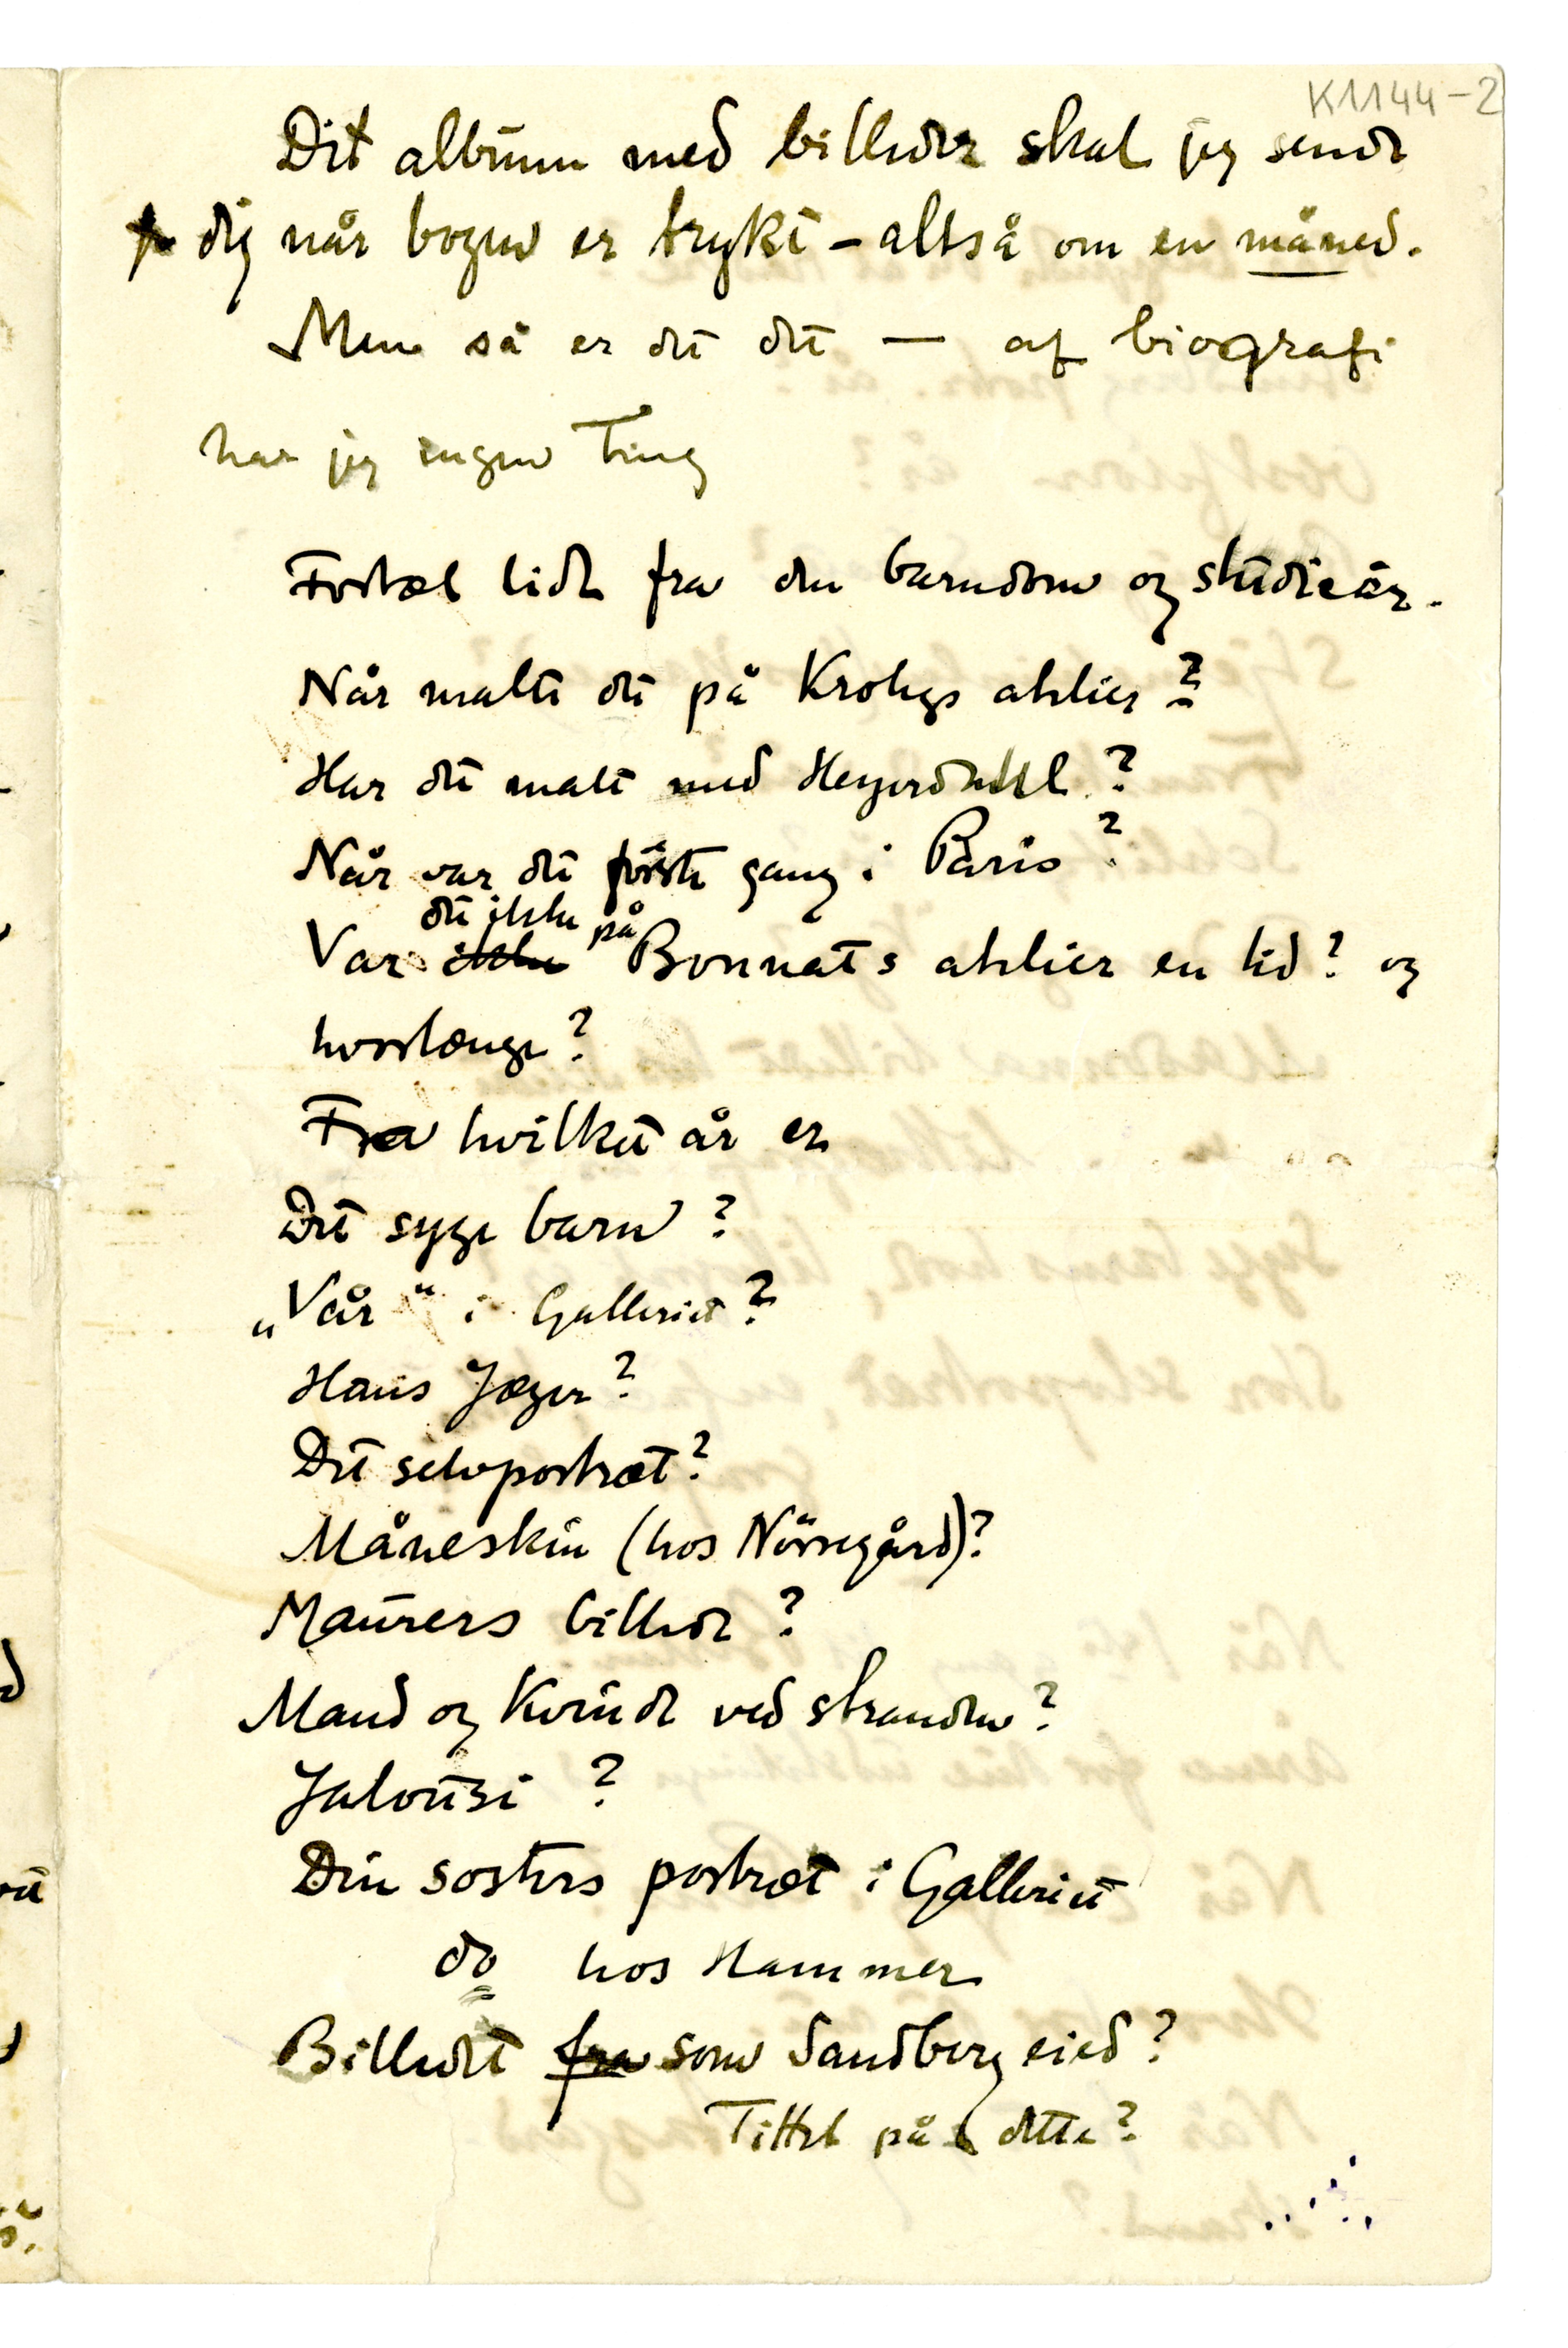 K1144-2
Dit album med billeder skal jeg sende
dig når bogen er trykt – altså om en måned.
Men så er det det — af biografi
har jeg ingen Ting
Fortæl lidt fra din barndom og studieår.
Når malte du på Krohgs atelier?
Har du malt med Heyerdahl?
Når var du første gang i Paris?
Var ikke du ikke på Bonnats atelier en tid? og
hvorlænge?
Fra hvilket år er
Det syge barn?
„Vår“ i Galleriet?
Hans Jæger?
Dit selvportræt?
Måneskin (hos Nörregård)?
Maurers billede?
Mand og Kvinde ved stranden?
Jalousi?
Din sosters portræt i Galleriet
do hos Hammer
Billedet fra som Sandberg eied?
Tittel på dette?